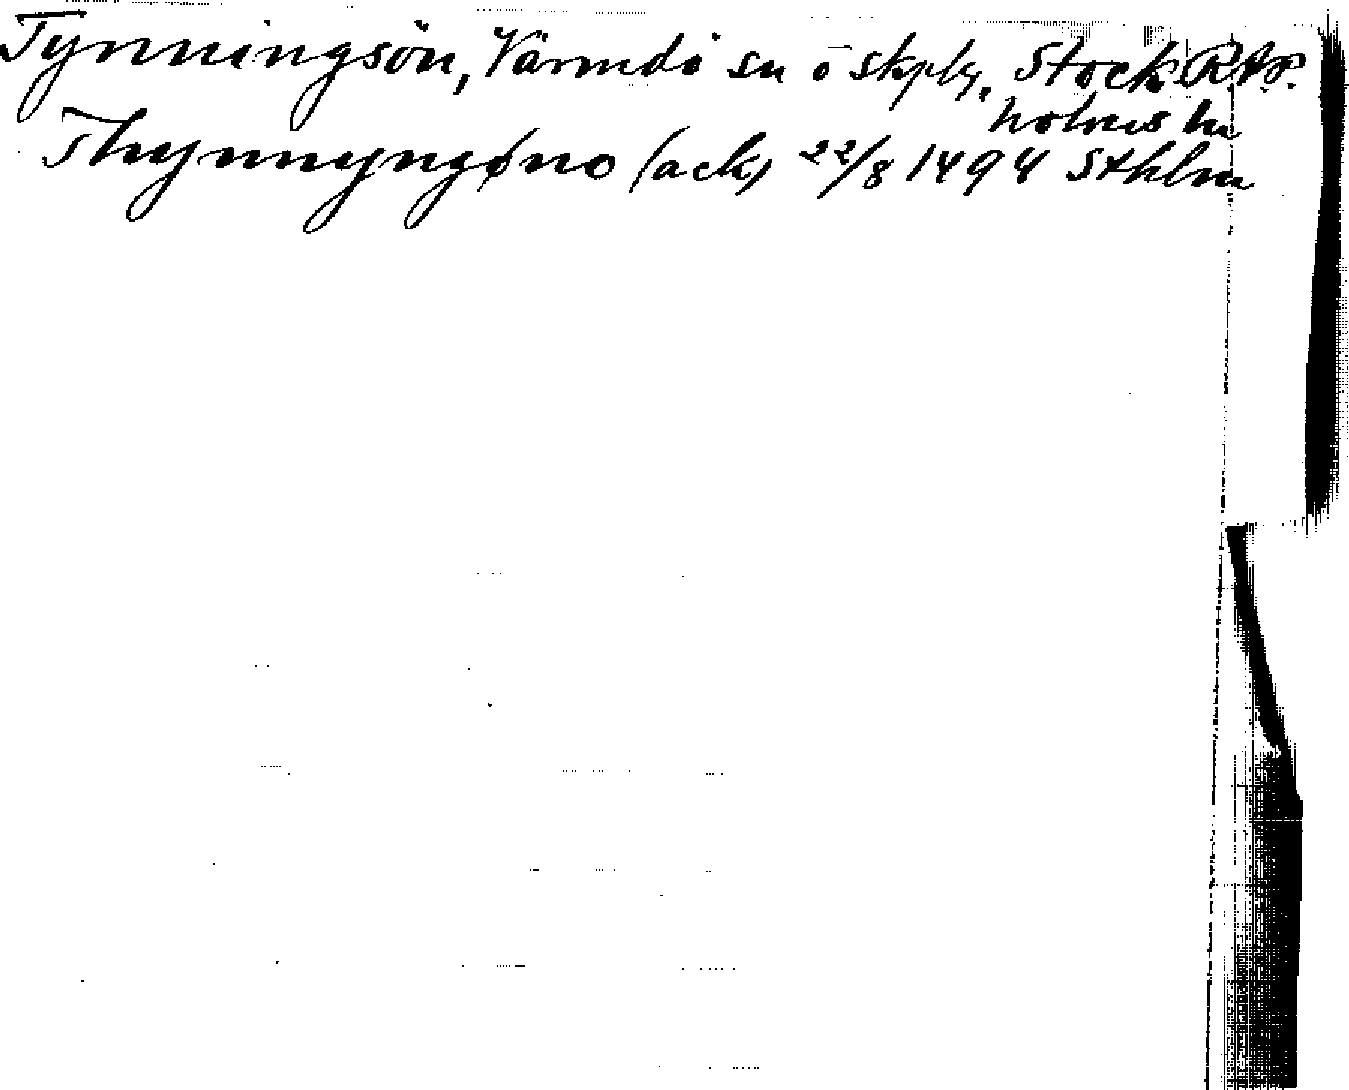 Tynningsön, Värmdö sn o skplg. Stock RAp.
holms ln
Thynnyngøno (ack) 22/8 1494 Sthlm